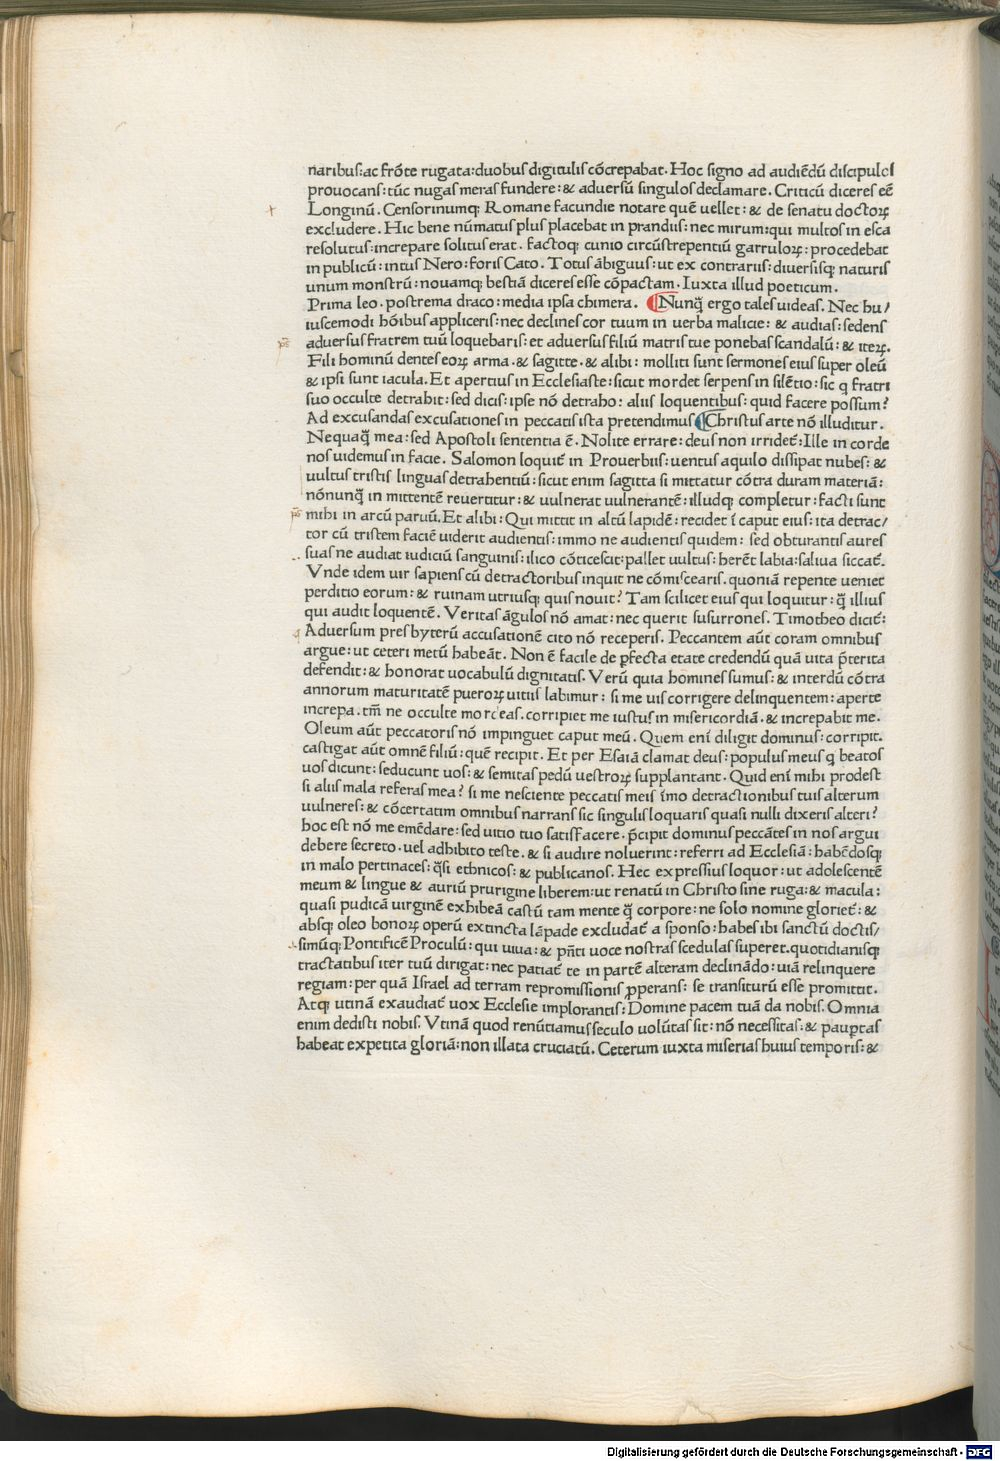 naribus:ac frōte rugata:duobus digitulis cōcrepabat. Hoc signo ad audiēdū discipulos
prouocans: tūc nugas meras fundere: & aduersū singulos declamare. Criticū diceres eē
Longinū. Censorinumq; Romane facundie notare quē uellet: & de senatu doctoꝝ
excludere. Hic bene nūmatus plus placebat in prandiis: nec mirum:qui multos in esca
resolutus:increpare solitus erat. factoq; cunio circūstrepentiū garruloꝝ: procedebat
in publicū: intus Nero: foris Cato. Totus ābiguus: ut ex contrariis: diuersisq; naturis
unum monstrū: nouamq; bestiā diceres esse cōpactam. Iuxta illud poeticum.
Prima leo. postrema draco: media ipsa chimera. ¶Nunq̄ ergo tales uideas. Nec hu/
iuscemodi hōibus appliceris: nec declines cor tuum in uerba malicie: & audias: sedens
aduersus fratrem tuū loquebaris: et aduersus filiū matris tue ponebas scandalū: & iteꝝ.
Fili hominū dentes eoꝝ arma. & sagitte. & alibi: molliti sunt sermones eius super oleū
& ipsi sunt iacula. Et apertius in Ecclesiaste: sicut mordet serpens in silētio: sic q fratri
suo occulte detrahit: sed dicis: ipse nō detraho: aliis loquentibus: quid facere possum?
Ad excusandas excusationes in peccatis ista pretendimus ¶Christus arte nō illuditur.
Nequaq̄ mea: sed Apostoli sententia ē. Nolite errare: deus non irridet̄: Ille in corde
nos uidemus in facie. Salomon loquit̄ in Prouerbiis: uentus aquilo dissipat nubes: &
uultus tristis linguas detrahentiū: sicut enim sagitta si mittatur cōtra duram materiā:
nōnunq̄ in mittentē reuertitur: & uulnerat uulnerantē: illudq; completur: facti sunt
mihi in arcū paruū. Et alibi: Qui mittit in altū lapidē: recidet ī caput eius: ita detrac/
tor cū tristem faciē uiderit audientis: immo ne audientis quidem: sed obturantis aures
suas ne audiat iudiciū sanguinis: ilico cōticescit: pallet uultus: herēt labia: saliua siccat̄.
Vnde idem uir sapiens cū detractoribus inquit ne cōmiscearis. quoniā repente ueniet
perditio eorum: & ruinam utriusq; quis nouit? Tam scilicet eius qui loquitur: q̄ illius
qui audit loquentē. Veritas āgulos nō amat: nec querit susurrones. Timotheo dicit̄:
Aduersum presbyterū accusationē cito nō receperis. Peccantem aūt coram omnibus
argue: ut ceteri metū habeāt. Non ē facile de ꝑfecta etate credendū quā uita p̄terita
defendit: & honorat uocabulū dignitatis. Verū quia homines sumus: & interdū cōtra
annorum maturitatē pueroꝝ uitiis labimur: si me uis corrigere delinquentem: aperte
increpa. tm̄ ne occulte mordeas. corripiet me iustus in misericordiā. & increpabit me.
Oleum aūt peccatoris nō impinguet caput meū. Quem enī diligit dominus: corripit.
castigat aūt omnē filiū: quē recipit. Et per Esaiā clamat deus: populus meus q beatos
uos dicunt: seducunt uos: & semitas pedū uestroꝝ supplantant. Quid enī mihi prodest
si aliis mala referas mea? si me nesciente peccatis meis īmo detractionibus tuis alterum
uulneres: & cōcertatim omnibus narrans sic singulis loquaris quasi nulli dixeris alteri?
hoc est nō me emēdare: sed uitio tuo satisfacere. p̄cipit dominus peccātes in nos argui
debere secreto. uel adhibito teste. & si audire noluerint: referri ad Ecclesiā: habēdosq;
in malo pertinaces: q̄si ethnicos: & publicanos. Hec expressius loquor: ut adolescentē
meum & lingue & auriū prurigine liberem: ut renatū in Christo sine ruga: & macula:
quasi pudicā uirginē exhibeā castū tam mente q̄ corpore: ne solo nomine gloriet̄: &
absq; oleo bonoꝝ operū extincta lāpade excludat̄ a sponso: habes ibi sanctū doctis/
simūq; Pontificē Proculū: qui uiua: & pn̄ti uoce nostras scedulas superet. quotidianisq;
tractatibus iter tuū dirigat: nec patiat̄ te in partē alteram declināndo: uiā relinquere
regiam: per quā Israel ad terram repromissionis ꝓperans: se transiturū esse promittit.
Atq; utinā exaudiat̄ uox Ecclesie implorantis: Domine pacem tuā da nobis. Omnia
enim dedisti nobis. Vtinā quod renūtiamus seculo uolūtas sit: nō necessitas: & pauꝑtas
habeat expetita gloriā: non illata cruciatū. Ceterum iuxta miserias huius temporis: &
Digitalisierung gefördert durch die Deutsche Forschungsgemeinschaft - DFG